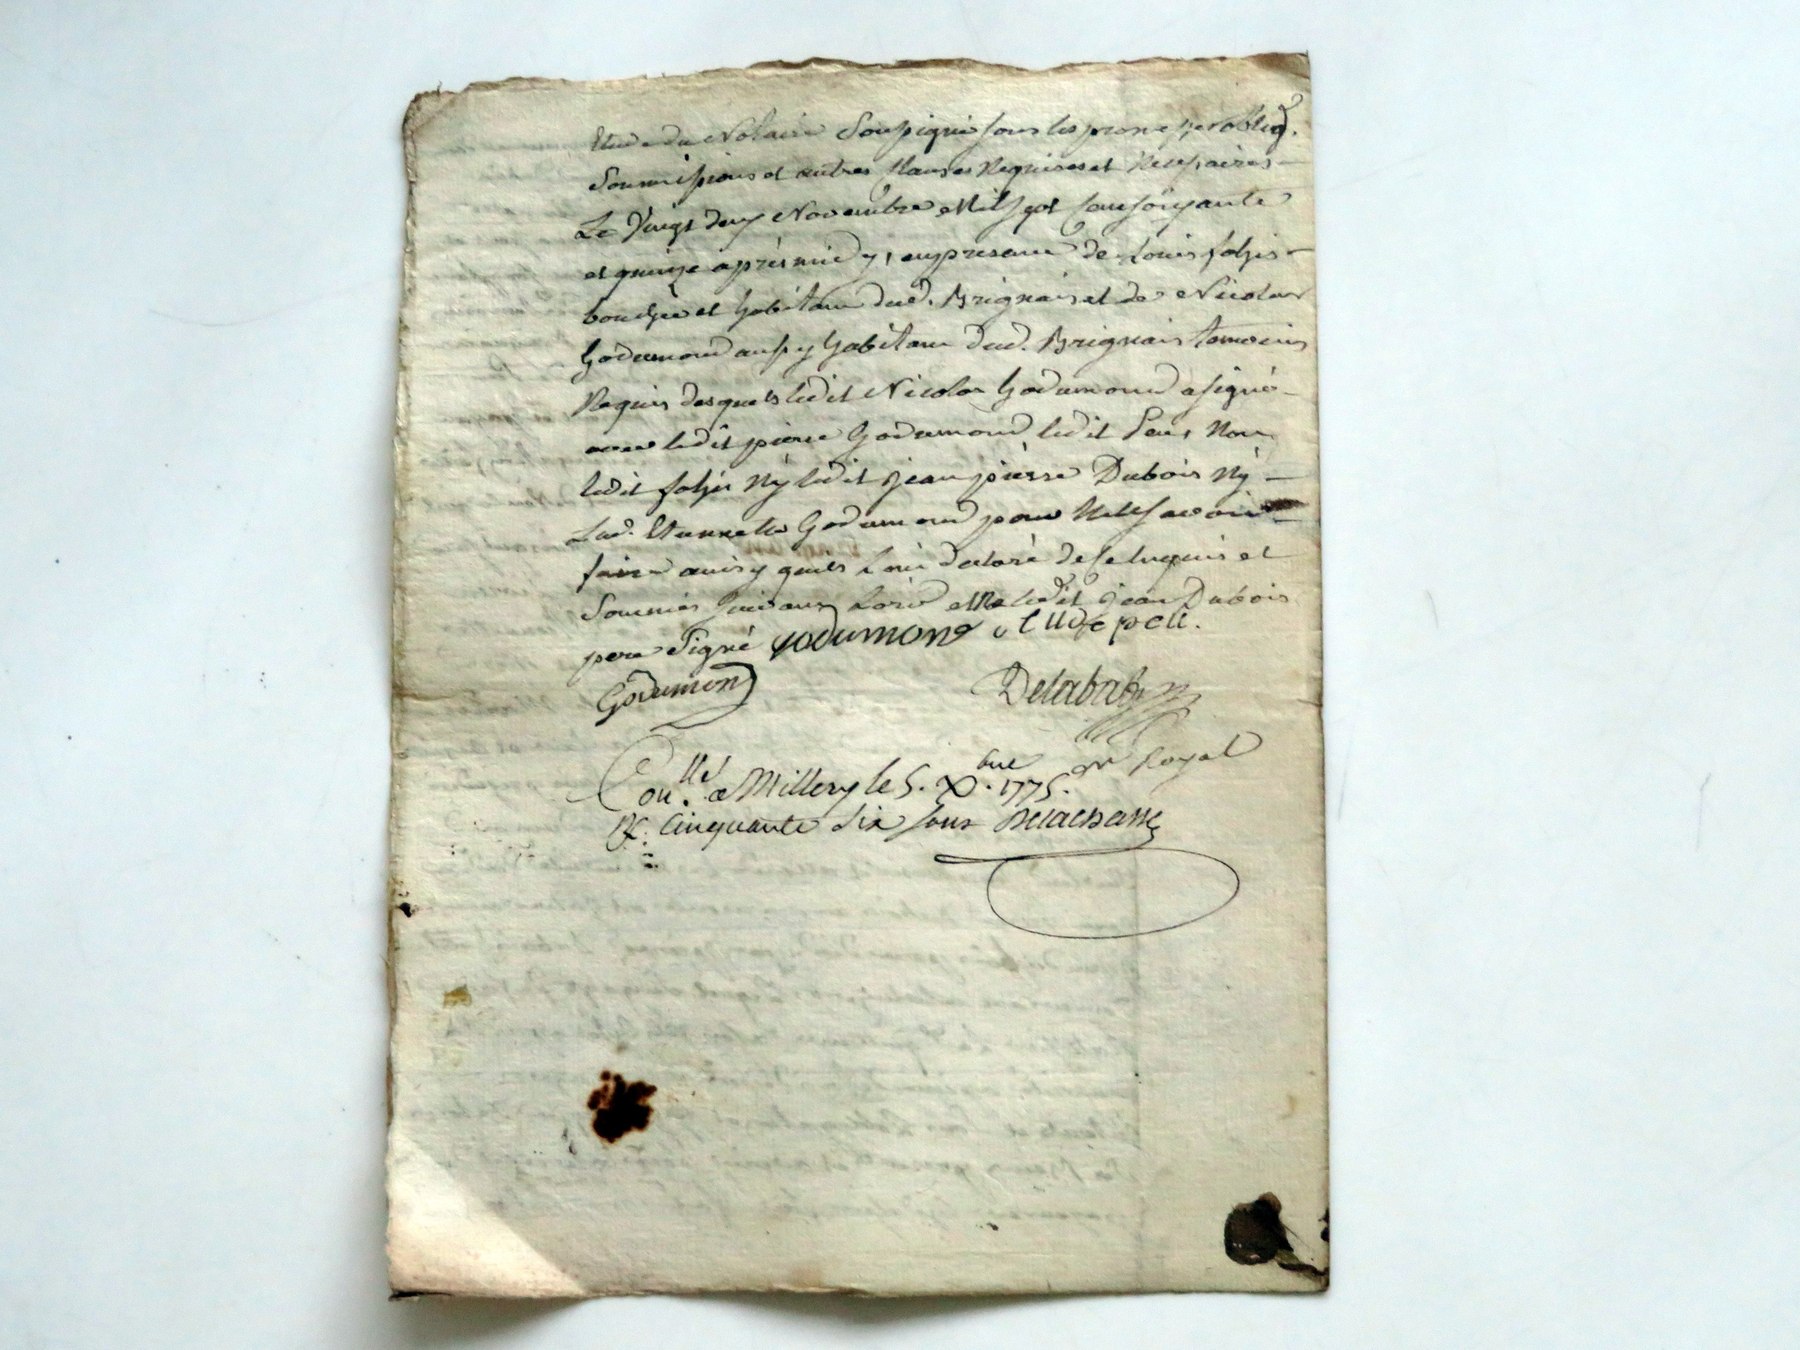 Etude du Notaire Soussigné sous les prom. obliq.
Soumissions et autres Clauses Requises et Necessaires
Le Vingt deux Novembre Mil Sept Cent Soixante
et quinze après midy, en presence de Louis
boucher et habitant dud. Brignais et de Nicolas
Godumond aussy habitant dud. Brignais temoins
Requis desquels ledit Nicolas Godumond a signé
avec ledit pierre Godumond, ledit Non
ledit Ny ledit Jean pierre Dubois Ny
Lad. Etiennette Godumond pour Ne le Scavoir
faire ainsy quils L'ont declaré de ce Enquis et
Sommés Suivant Lord. et Me ledit Jean Dubois
pere Signé Godumond
Godumond
Royal
Con.lle a Millery le 5. Xbre 1775.
R. Cinquante dix sous Delachasse